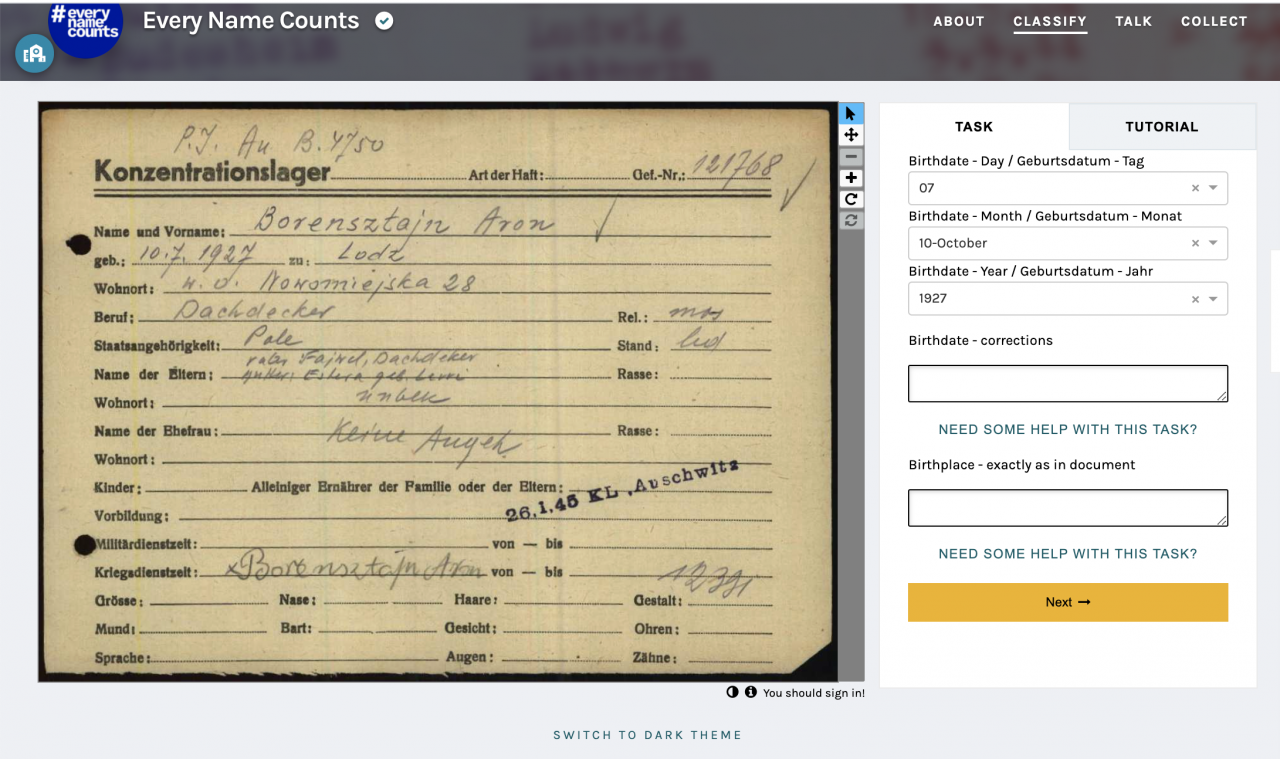 #every
name
counts
Every Name Counts
ABOUT
CLASSIFY
TALK
COLLECT
P.J. Au B. 4750
Konzentrationslager Art der Haft: Gef.-Nr.: 121768
Name und Vorname: Borensztajn Aron
geb.: 10.7.1927 zu: Lodz
Wohnort: w. o. Nowomiejska 28
Beruf: Dachdecker Rel.: mos
Staatsangehörigkeit: Pole Stand: led
Vater Fajwel, Dachdecker
Name der Eltern: Mutter: Estera geb. Lewi Rasse:
Wohnort: unbek
Name der Ehefrau: Keine Angeh Rasse:
Wohnort:
Kinder: Alleiniger Ernährer der Familie oder der Eltern:
26.1.45 KL. Auschwitz
Vorbildung:
Militärdienstzeit: von — bis
Kriegsdienstzeit: xBorensztajn Aron von — bis
Grösse: Nase: Haare: Gestalt:
Mund: Bart: Gesicht: Ohren:
Sprache: Augen: Zähne:
You should sign in!
TASK
TUTORIAL
Birthdate - Day / Geburtsdatum - Tag
07
Birthdate - Month / Geburtsdatum - Monat
10-October
Birthdate - Year / Geburtsdatum - Jahr
1927
Birthdate - corrections
NEED SOME HELP WITH THIS TASK?
Birthplace - exactly as in document
NEED SOME HELP WITH THIS TASK?
Next →
SWITCH TO DARK THEME